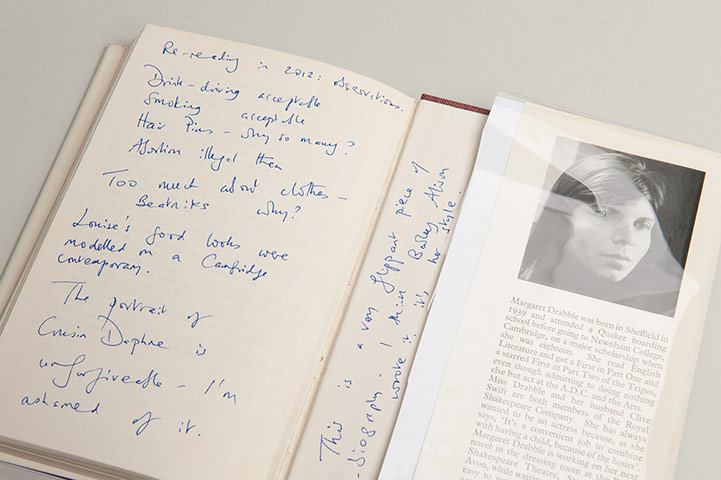 Re-reading in 2012: observations.
Drink-driving acceptable
Smoking acceptable
Hair Pins – Why so many?
Abortion illegal then
Too much about clothes –
Beatniks why?
Louise's good looks were
modelled on a Cambridge
contemporary.
The portrait of
Cousin Daphne is
unforgiveable – I'm
ashamed of it.
This is a very flippant piece of
-biography – I think Alison
wrote it. it's her style.
Margaret Drabble was born in Sheffield in
1939 and attended a Quaker boarding
school before going to Newnham College,
Cambridge, on a major scholarship when
she was eighteen. She read English
Literature and got a First in Part One and
a starred First in Part Two of the Tripos,
even though admitting to doing nothing
else but act at the A.D.C. and the Arts.
Miss Drabble and her husband Clive
Swift are both members of the Royal
Shakespeare Company. She has always
wanted to be an actress because, as she
says, 'It's a convenient job to combine
with having a child, because of the hours'.
Margaret Drabble is working on her next
novel in the dressing room at the
Shakespeare Theatre,
Avon, while waiting
easy to